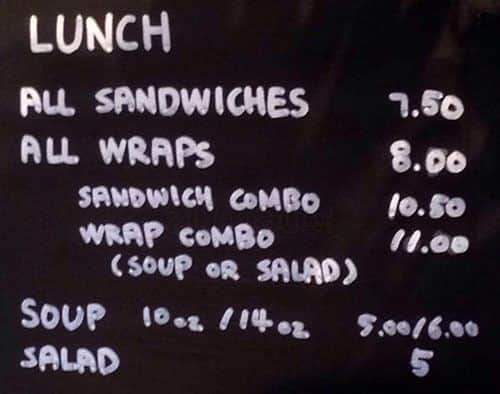 LUNCH
ALL SANDWICHES 7.50
ALL WRAPS 8.00
SANDWICH COMBO 10.50
WRAP COMBO 11.00
(SOUP OR SALAD)
SOUP 10oz / 14oz 5.00/6.00
SALAD 5